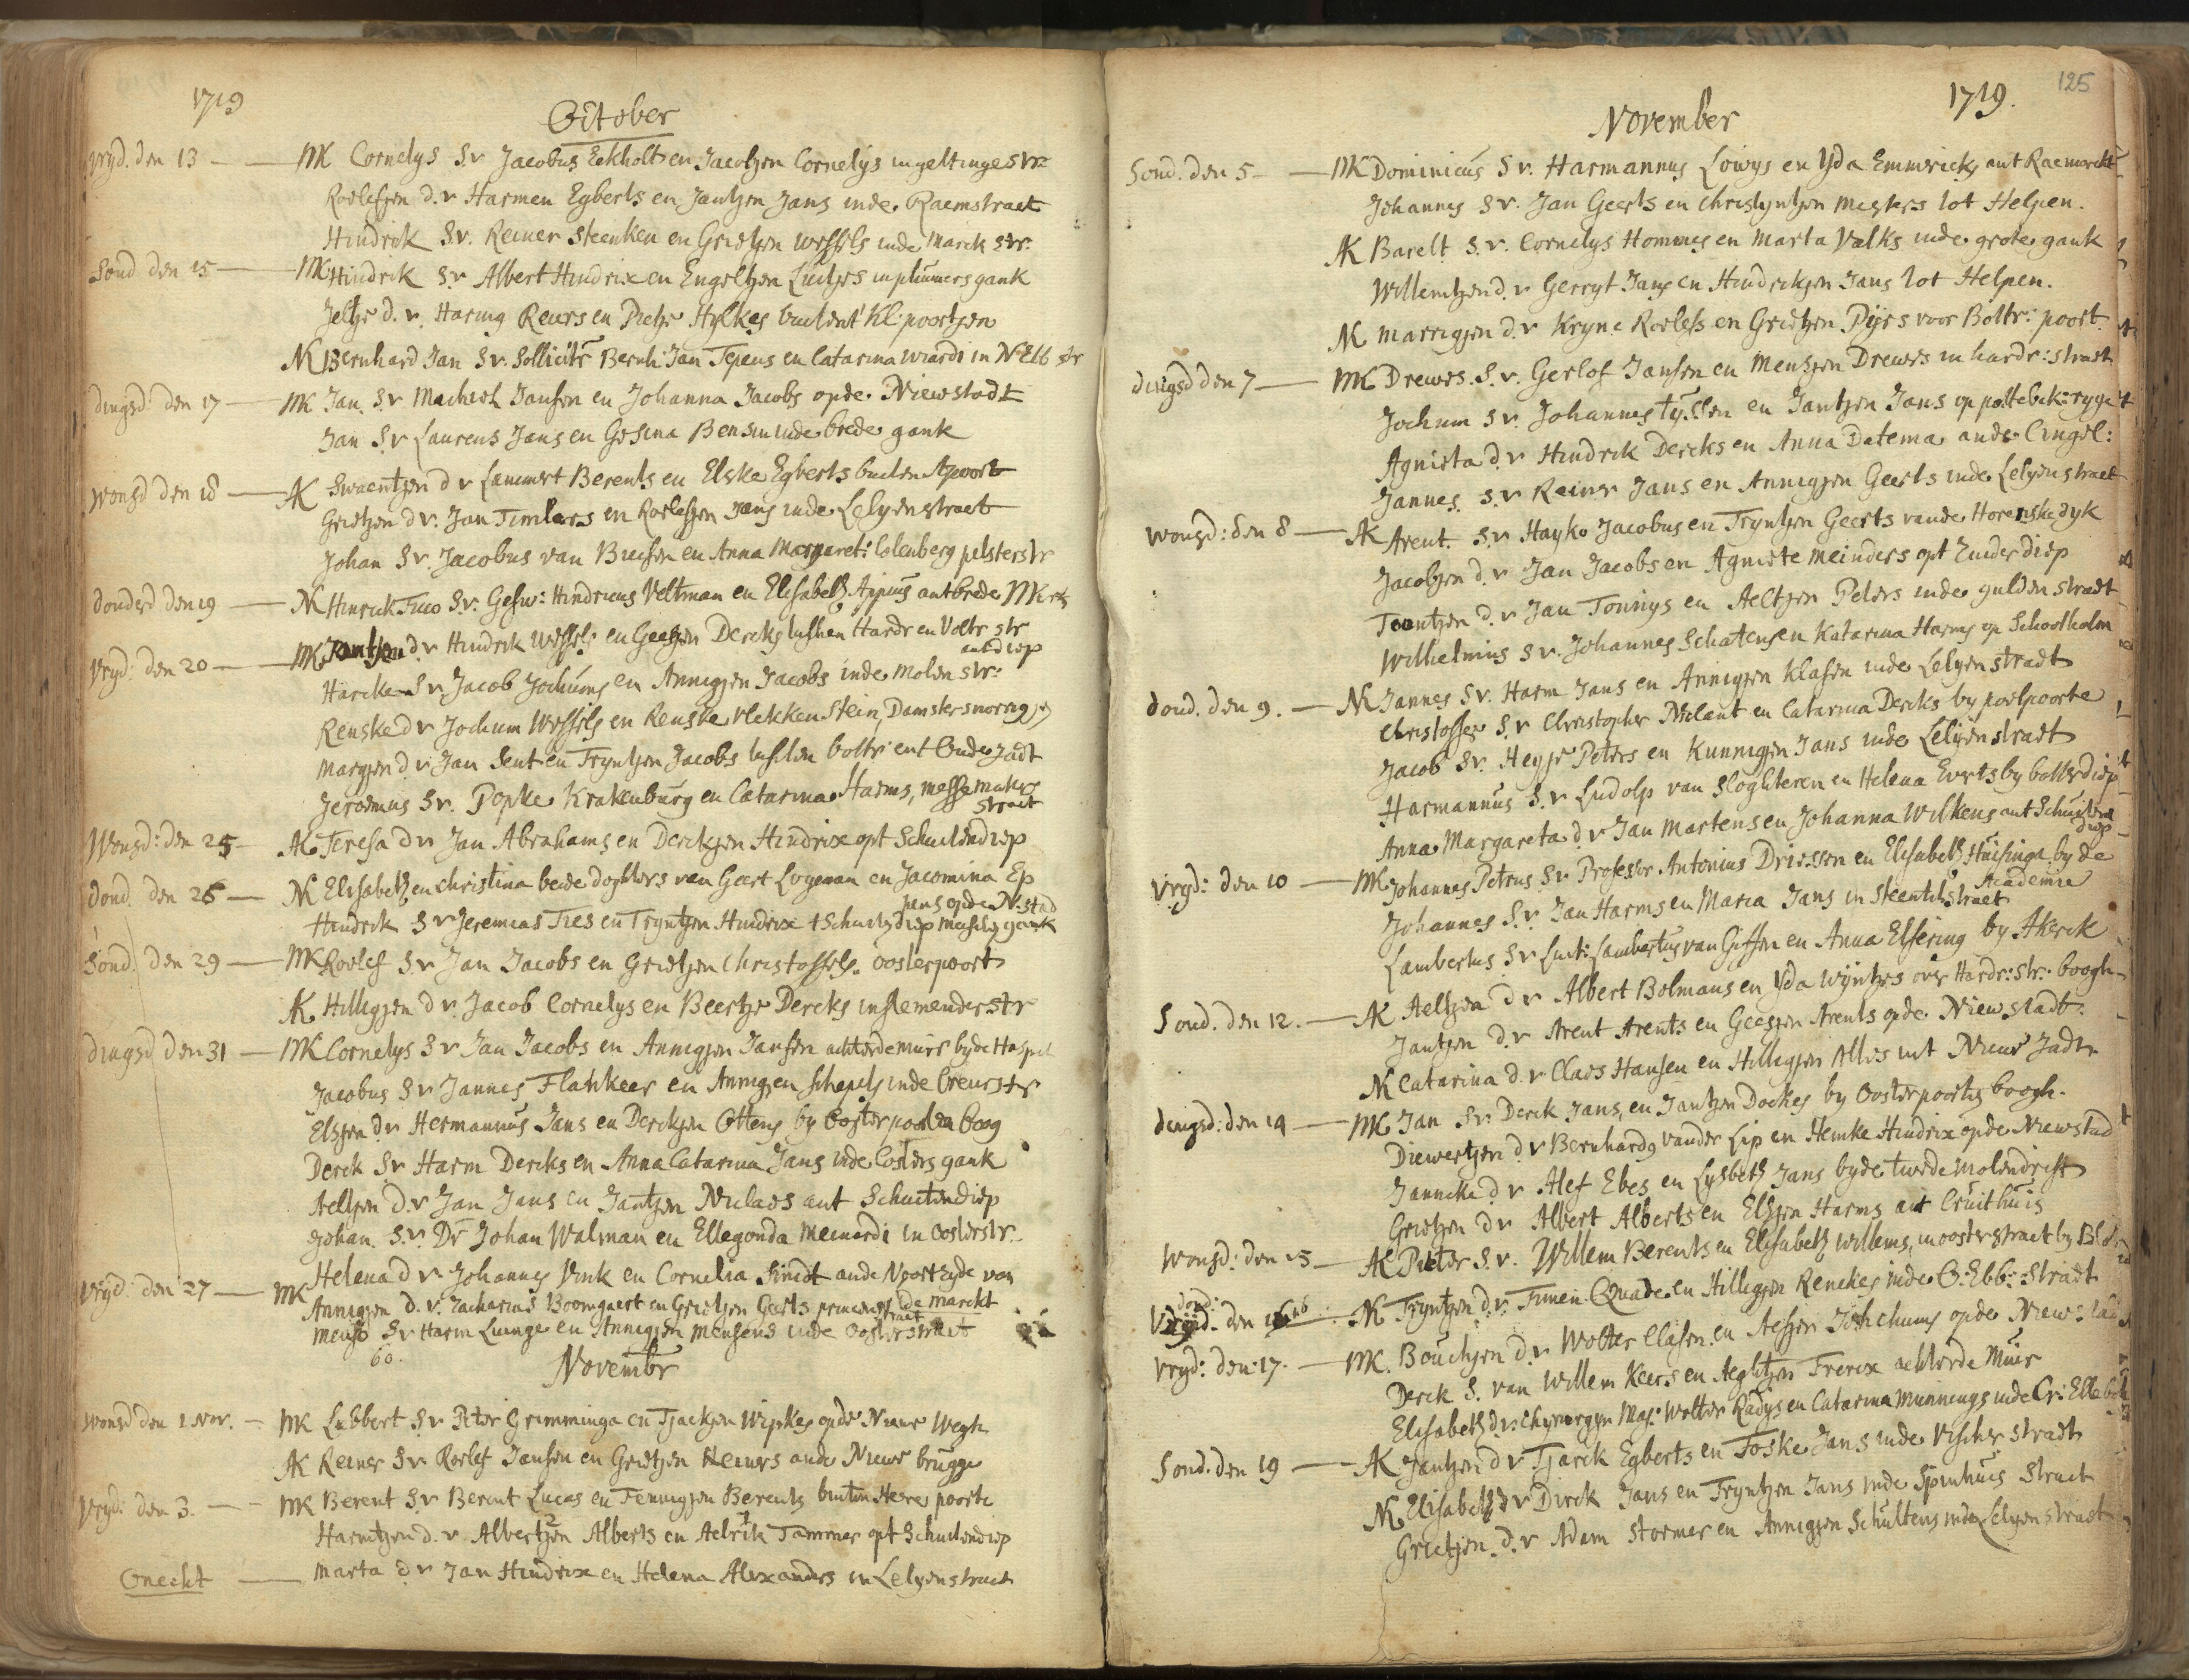 1719
October
vryd. den 13 — MK Cornelys S.v Jacobus Eekholt en Jacobjen Cornelys in geltinge str:
Roelefjen d.v Harmen Egberts en Jantjen Jans inde Raemstraet
Hindrik S.v. Reiner Steenken en Grietjen Wessels inde Marck str:
Sond den 15 — MK Hindrik S.v Albert Hindrix en Engeltjen Luitjes in plumers gank
Jeltje d.v. Haring Reiers en Pietje Hylkes buiten t Kl: poortjen
NK Bernhard Jan S.v. Sollicitr Bernh: Jan Tjeus en Catarina Wiardi in N Ebb str
dingsd den 17 — MK Jan S.v Machiel Jansen en Johanna Jacobs opde Niewstadt
Jan S.v Laurens Jans en Gesina Bensin inde brede gank
Wonsd den 18 — AK Swaentjen d.v Lammert Berents en Elske Egberts buiten Apoort
Grietjen d.v. Jan Timlers en Roelefjen Jans inde Lelyenstraet
Johan S.v Jacobus van Buesen en Anna Margaret: Colenberg pelsterstr
donderd den 19 — NK Hinrick Fuco S.v. Gesw: Hindricus Veltman en Elisabeth Appius ant brede MKrk
vryd: den 20 — MK d.v Hindrik Wessels en Geesjen Dercks tussen Hardr en Voltr str
ant diep
Harcke S.v Jacob Jochums en Annigjen Jacobs inde Molen str:
Renske d.v Jochum Wessels en Renske Vlekken Stein, Damster
Margjen d.v. Jan Sent en Tryntjen Jacobs tussen boltr: ent Oude Jadt
Jeroemus S.v. Popke Krakenburg en Catarina Harms, messemakers
straet
Wonsd: den 25 — AK Teresa d.v Jan Abrahams en Derckjen Hindrix opt Schuitendiep
dond. den 26 — NK Elisabeth en Christina beide doghters van Geert Logeman en Jacomina Ep
pens opde N:stad
Hindrik S.v Jeremias Ties en Tryntjen Hindrix t Schuitendiep gank
Sond. den 29 — MK Roelef S.v Jan Jacobs en Grietjen Christoffels. oosterpoort
AK Hillegjen d.v. Jacob Cornelys en Beertje Dercks in str
dingsd den 31 — MK Cornelys S.v Jan Jacobs en Annigjen Jansen achter de muire by de
Jacobus S.v Jannes Flahkeer en Annigjen Schepels inde Creus str
Elsjen d.v Hermannus Jans en Derckjen Ottens by Oosterpoorten boog
Derck S.v Harm Dercks en Anna Catarina Jans inde Costers gank
Aeltjen d.v Jan Jans en Jantjen Niclaes ant Schuitendiep
Johan S.v. Dr Johan Walman en Ellegonda Meinardi in Oosterstr.
Helena d.v Johannes Vink en Cornelia Smidt ande Noortzyde van
de marckt
vryd: den 27 — MK Annigjen d.v. Zacharias Boomgaert en Grietjen Geerts princens
straet
Menso S.v Harm Luinge en Annigjen Mensens inde Oosterstraet
60.
Novembr
Wonsd den 1 Nov. — MK Lubbert S.v Pieter Gramminga en Tjaekjen Wipkes opde Nieuwe Wegh
AK Reiner S.v Roelef Jansen en Grietjen Reiners ande Nieuwe brugge
Vryd: den 3. — MK Berent S.v Berent Lucas en Fennigjen Berents buiten Here poorte
Harmtjen d.v. Albertjen Alberts en Aelrik Tammes opt Schuitendiep
Onecht — Marta d.v Jan Hindrix en Helena Alexanders in Lelyenstraet
125
1719.
November
Sond. den 5 — MK Dominicus S.v. Harmannus Lowys en Yda Emmericks ant Raemarckt
Johannes S.v. Jan Geerts en Christyntjen Mesters tot Helpen.
AK Barelt S.v. Cornelys Hommes en Marta Valks inde grote gank
Willemtjen d.v Gerryt Jans en Hindrikjen Jans tot Helpen.
NK Marrigjen d.v Kryne Roelefs en Grietjen Pyrs voor Boltr: poort.
dingsd den 7 — MK Drewes S.v. Gerlof Jansen en Mentjen Drewes in hardr: straet
Jochum S.v. Johannes Tyssen en Jantjen Jans op pottebck: ryge
Agnieta d.v Hindrik Dercks en Anna Datema ande Cingel:
Jannes S.v Reiner Jans en Annigjen Geerts inde Lelyenstraet
Wonsd: den 8 — AK Arent S.v Hayko Jacobus en Tryntjen Geerts vande Horenskedyk
Jacobjen d.v Jan Jacobs en Agniete Meinders opt Zuiderdiep
Toontjen d.v Jan Tonnys en Aeltjen Peters inde gulden straet
Wilhelmius S.v. Johannes Schatensen Katarina Harms op Schoolholm
dond. den 9. — NK Jannes S.v. Harm Jans en Annigjen Klasen inde Lelyenstraet
Christoffer S.v Christopher Milant en Catarina Dercks by poelpoorte
Jacob S.v. Heyje Peters en Kunnigjen Jans inde Lelyenstraet
Harmannus S.v Ludolp van Sloghteren en Helena Everts by
Anna Margareta d.v Jan Martens en Johanna Wilkens ant Schuiten
diep
Vryd: den 10 — MK Johannes Petrus S.v Professor Antonius Driessen en Elisabeth Huisinga by de
Academie
Johannes S.v. Jan Harms en Maria Jans in Steentilstraet
Lambertus S.v Luit: Lambertus van Giffen en Anna Elsering by Akerck
Sond. den 12. — AK Aeltjen d.v Albert Bolmans en Yda Wyntjes over Hardr: str: boogh
Jantjen d.v Arent Arents en Geesjen Arents opde Niewstadt.
NK Catarina d.v Claes Hansen en Hillegjen Alles int Nieuwe Jadt
dingsd: den 14 — MK Jan S.v Derck Jans en Jantjen Dockes by Oosterpoorte boogh.
Diewertjen d.v Bernhardg vander Lip en Hemke Hindrix opde Niewstad
Janneke d.v Alef Ebes en Lysbeth Jans by de twede Molendrift
Grietjen d.v Albert Alberts en Elsjen Harms ant Cruithuis
Wonsd: den 15 — AK Pieter S.v. Willem Berents en Elisabeth Willems, in oosterstraet by
dond:
den 16 — NK Tryntjen d.v. Timen Quade en Hillegjen Renekes inde O: Ebb: Straet
Vryd: den 17. — MK. Bouchjen d.v Wolter Clasen en Aeltjen Jochums opde Niew:
Derck S. van Willem Keers en Aegtjen Frerix achter de Muir
Elisabeth d.v. Chyrurgyn Maj: Wolter Radys en Catarina Munnings inde Cr: Elleboh
Sond. den 19 — AK Jantjen d.v Tjarck Egberts en Foske Jans inde Visscher straet
NK Elisabeth d.v Dirck Jans en Tryntjen Jans inde Spinhuis Straet
Grietjen d.v Adam Stormer en Annigjen Schultens inde Lelyenstraet